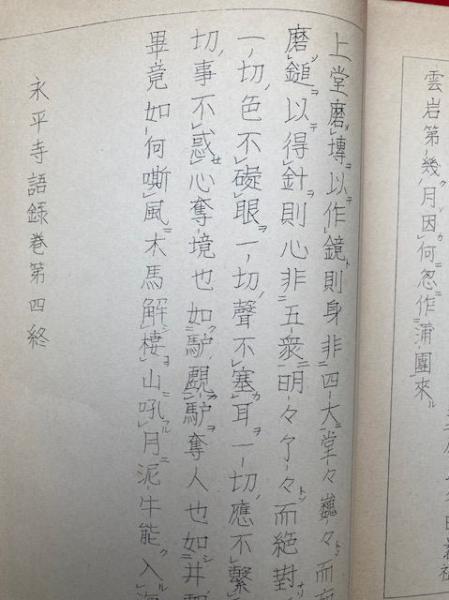 雲岩第幾月因何忽作蒲團來
上堂磨塼以作鏡則身非四大堂々巍々而
磨鎚以得針則心非五衆明々了々而絶對
一切色不礙眼一切聲不塞耳一切應不繋
切事不惑心奪境也如驢覷驢奪人也如井
畢竟如何嘶風木馬解棲山吼月泥牛能入
永平寺語錄卷第四終